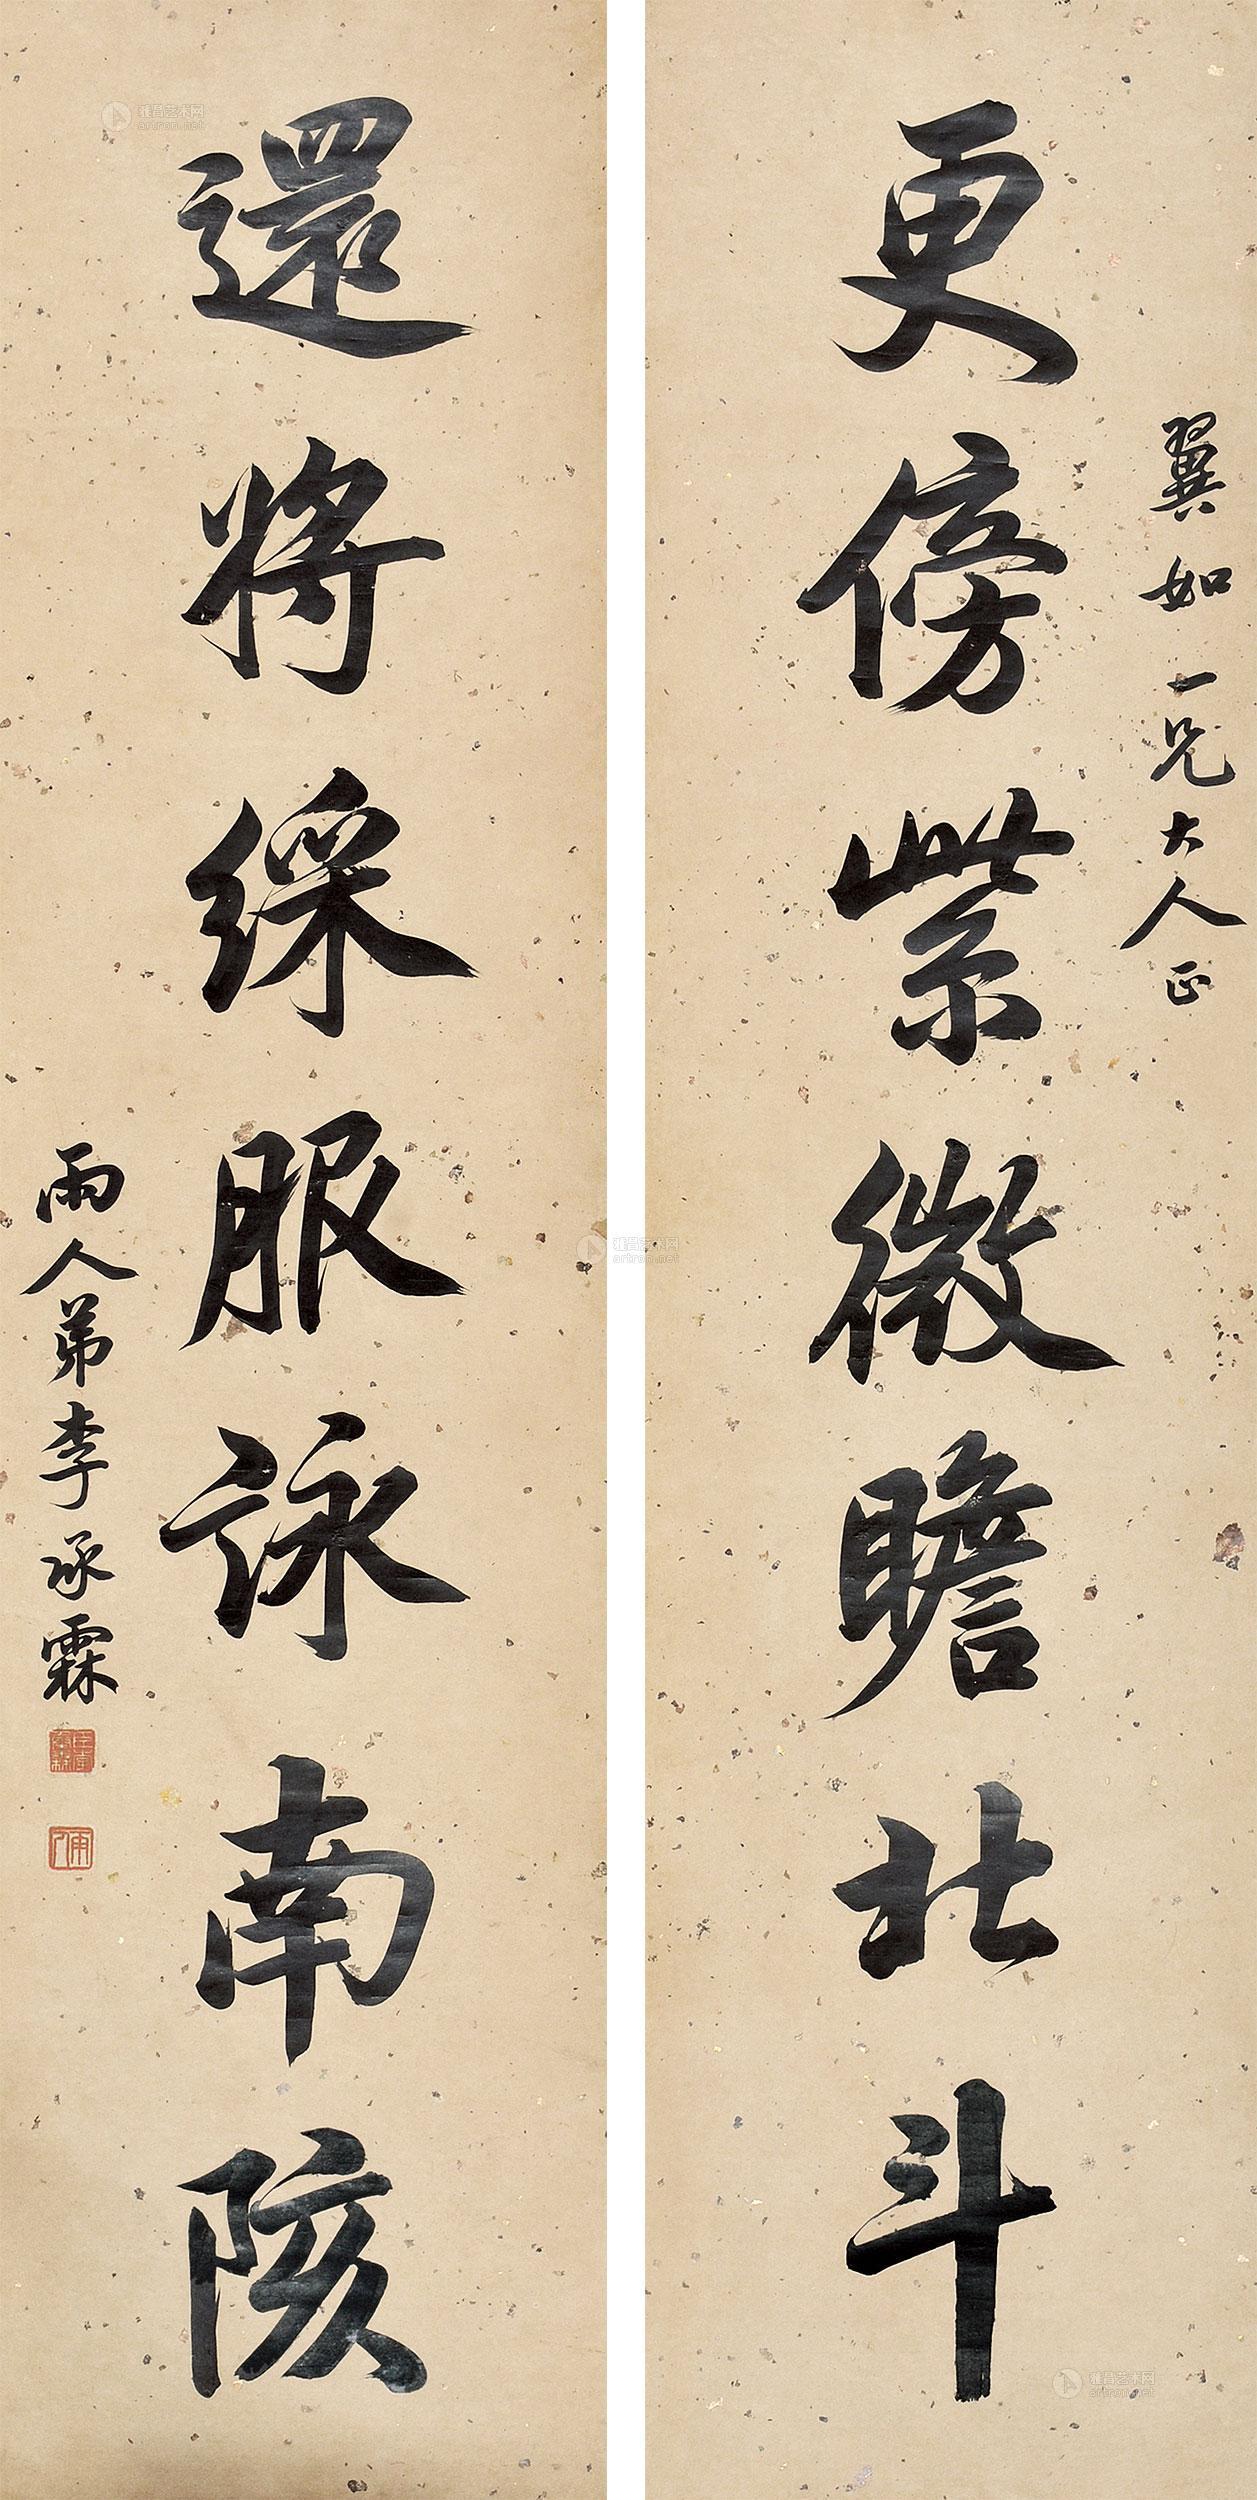 更傍紫微瞻北斗
翼如一兄大人正
還將綵服詠南陔
雨人弟李承霖
雅昌艺术网
artron.net
雅昌艺术网
artron.net
雅昌艺术网
artron.net